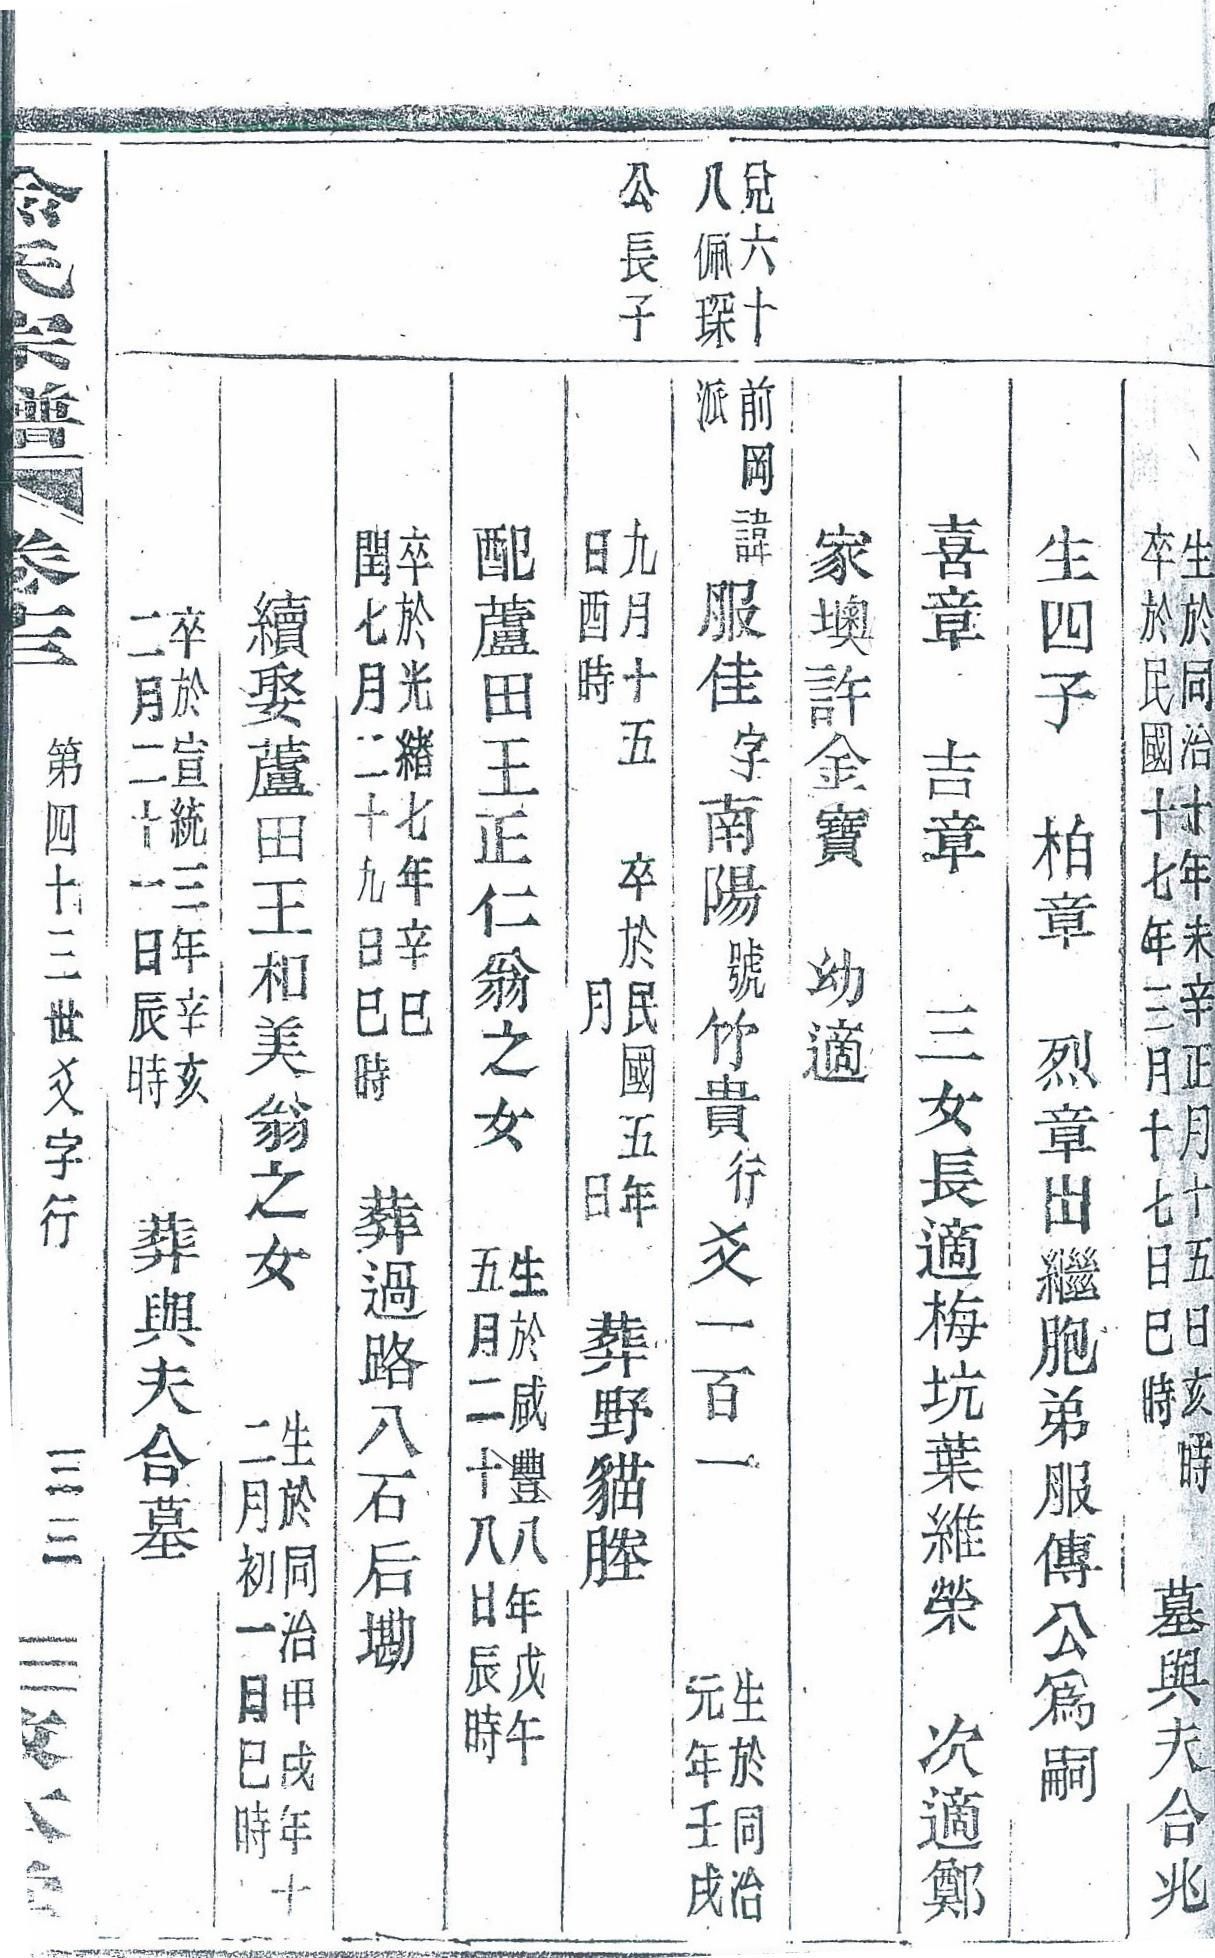 生於同治十年未辛正月十五日亥時
卒於民國十七年三月十七日巳時
墓與夫合兆
生四子 柏章 烈章出繼胞弟服傳公爲嗣
喜章 吉章 三女長適梅坑葉維榮 次適鄭
家墺許金寶 幼適
兌六十
八佩琛
公長子
前岡諱
派
服佳字南陽號竹貴行爻一百一
生於同治
元年壬戌
九月十五
日酉時
卒於民國五年
月 日
葬野貓塍
配蘆田王正仁翁之女
生於咸豐八年戊午
五月二十八日辰時
卒於光緒七年辛巳
閏七月二十九日巳時
葬過路八石后墈
續娶蘆田王和美翁之女
生於同治甲戌年十
二月初一日巳時
卒於宣統三年辛亥
二月二十一日辰時
葬與夫合墓
宗譜 卷三 第四十三世爻字行 三三